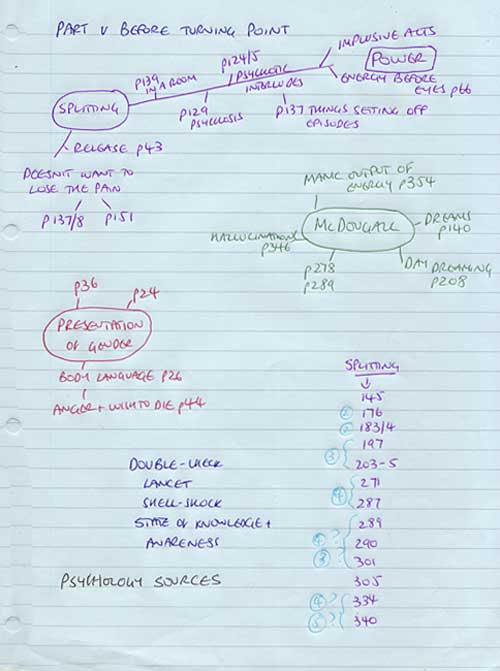 PART V BEFORE TURNING POINT
IMPULSIVE ACTS
p124/5
PSYCHOTIC
INTERLUDES
POWER
p139
IN A ROOM
ENERGY BEFORE
EYES p66
SPLITTING
p129
PSYCHOSIS
p137 THINGS SETTING OFF
EPISODES
RELEASE p43
DOESN'T WANT TO
LOSE THE PAIN
p137/8 p151
MANIC OUTPUT OF
ENERGY p354
McDOUGALL
DREAMS
p140
HALLUCINATIONS
p346
p278
p289
DAY DREAMING
p208
p36
p24
PRESENTATION
OF GENDER
BODY LANGUAGE p26
ANGER + WISH TO DIE p44
SPLITTING
↓
145
② 176
② 183/4
197
③
203-5
271
④
287
289
④ ? 290
③ ? 301
305
④ ? 334
⑤ ? 340
DOUBLE-CHECK
LANCET
SHELL-SHOCK
STATE OF KNOWLEDGE +
AWARENESS
PSYCHOLOGY SOURCES